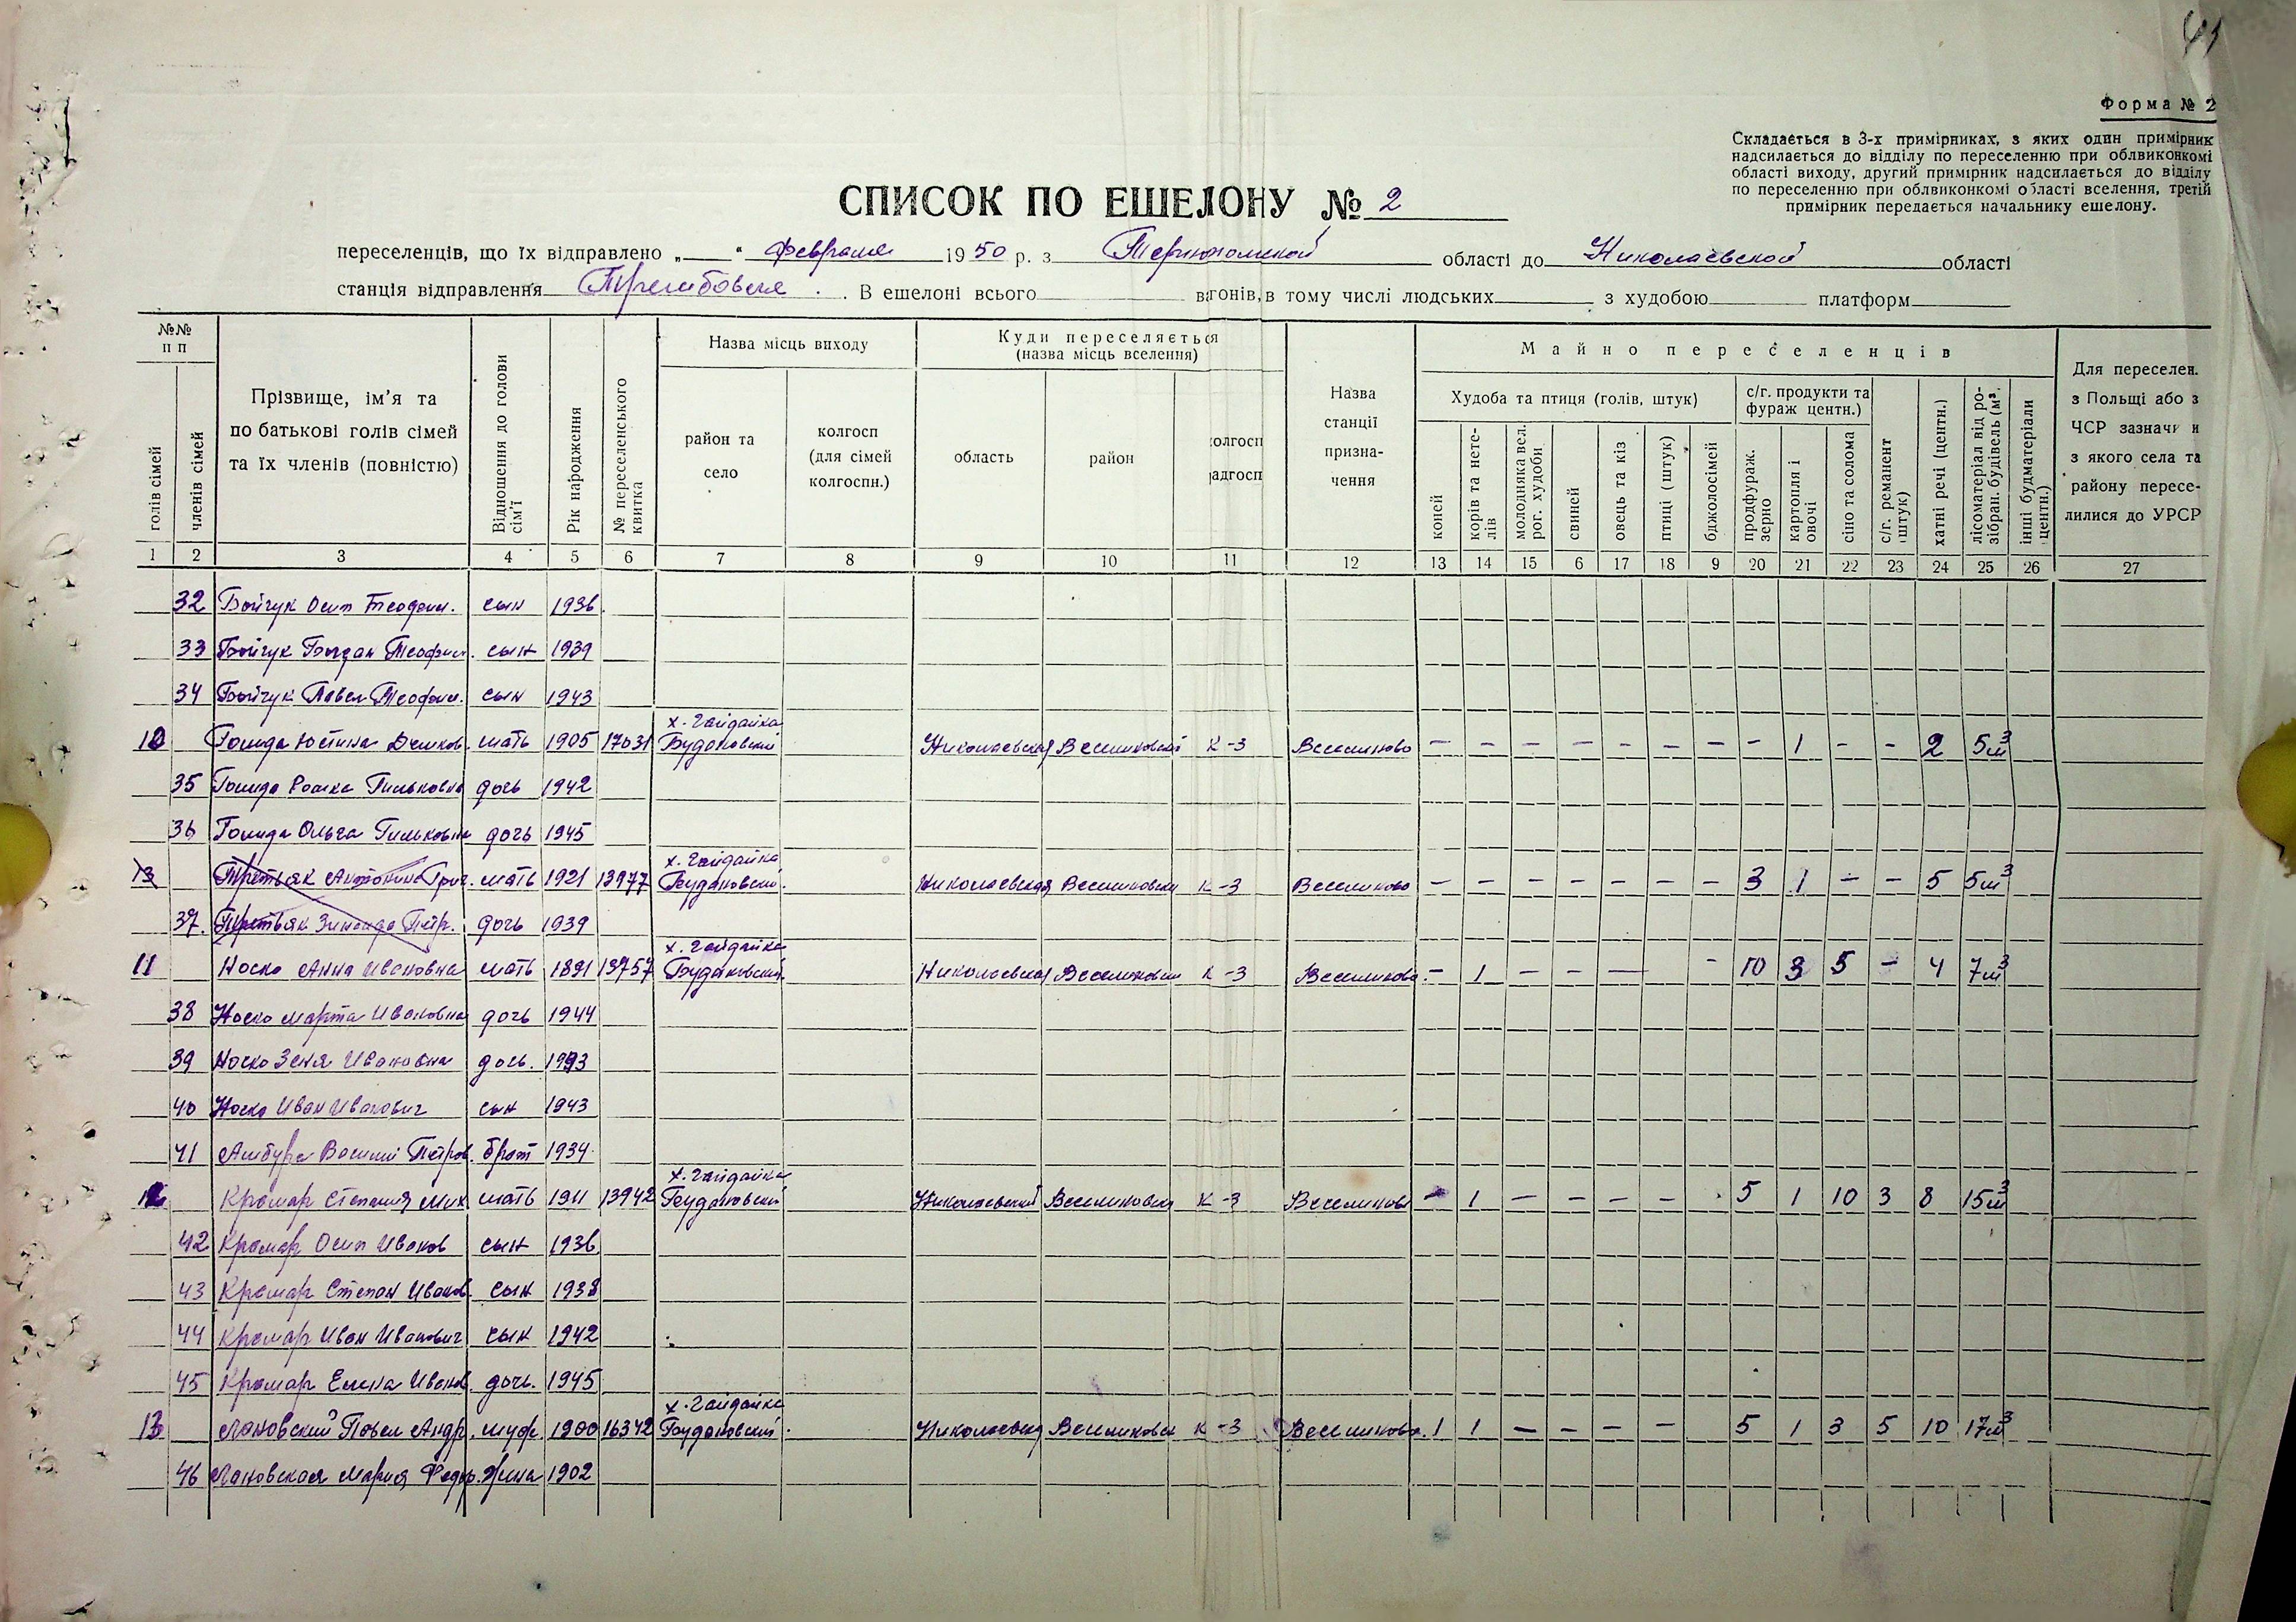 41
Форма № 2
Складається в 3-х примірниках, з яких один примірник
надсилається до відділу по переселенню при облвиконкомі
області виходу, другий примірник надсилається до відділу
по переселенню при облвиконкомі області вселення, третій
примірник передається начальнику ешелону.
СПИСОК ПО ЕШЕЛОНУ № 2
переселенців, що їх відправлено „ “ февраля 1950 р. з Тернопольской області до Николаевской області
станція відправлення В ешелоні всього вагонів, в тому числі людських з худобою платформ
№№ п п
голів сімей
членів сімей
Прізвище, ім’я та
по батькові голів сімей
та їх членів (повністю)
Відношення до голови сім’ї
Рік народження
№ переселенського квитка
Назва місць виходу
район та село
колгосп (для сімей колгоспн.)
Куди переселяється
(назва місць вселення)
область
район
олгосп
адгосп
Назва станції призна-чення
Майно переселенців
Худоба та птиця (голів, штук)
коней
корів та нете-лів
молодняка вел. рог. худоби
свиней
овець та кіз
птиці (штук)
бджолосімей
с/г. продукти та фураж центн.)
продфураж. зерно
картопля і овочі
сіно та солома
с/г. реманент штук)
хатні речі (центн.)
лісоматеріал від ро-зібран. будівель (м³.
інші будматеріали центн.)
Для переселен.
з Польщі або з
ЧСР зазначи и
з якого села та
району пересе-
лилися до УРСР
1 2 3 4 5 6 7 8 9 10 11 12 13 14 15 6 17 18 9 20 21 22 23 24 25 26 27
32 Бойчук Осип Теофил. сын 1936
33 Бойчук Богдан Теофил. сын 1939
34 Бойчук Павел Теофил. сын 1943
х. Гайдайка
10 Гошда Юстина мать 1905 17031 Будановский Николаевская Веселиновский к-3 Веселиново – – – – – – – – 1 – – 2 5м³
35 Гошда дочь 1942
36 Гошда Ольга дочь 1945
х. Гайдайка
13 Третьяк Антонина Григ. мать 1921 13977 Будановский. Николаевская Веселиновск к-3 Веселиново – – – – – – – 3 1 – – 5 5м³
37. Третьяк Зинаида Петр. дочь 1939
х. Гайдайка
11 Носко Анна Ивановна мать 1891 13757 Будановский. Николаевская Веселиновск к-3 Веселиново. – 1 – – — – 10 3 5 – 4 7м³
38 Носко Марта Ивановна дочь 1944
39 Носко Зеня Ивановна дочь. 1993
40 Носко Иван Иванович сын 1943
41 Василий Петров. брат 1934
х. Гайдайка
12 Крамар Степания Мих мать 1911 13942 Будановский Николаевский Веселиновск к-3 Веселиново – 1 – – – – 5 1 10 3 8 15м³
42 Крамар Осип Иванов сын 1936
43 Крамар Степан Иванов сын 1938
44 Крамар Иван Иванович сын 1942
45 Крамар Елена Иванов. дочь. 1945
х. Гайдайка
13 Лановский Павел Андр. муж. 1900 16342 Будановский. Николаевска Веселиновск к-3 Веселиново. 1 1 – – – – 5 1 3 5 10 17м³
46 Лановская Мария Федор. Жина 1902